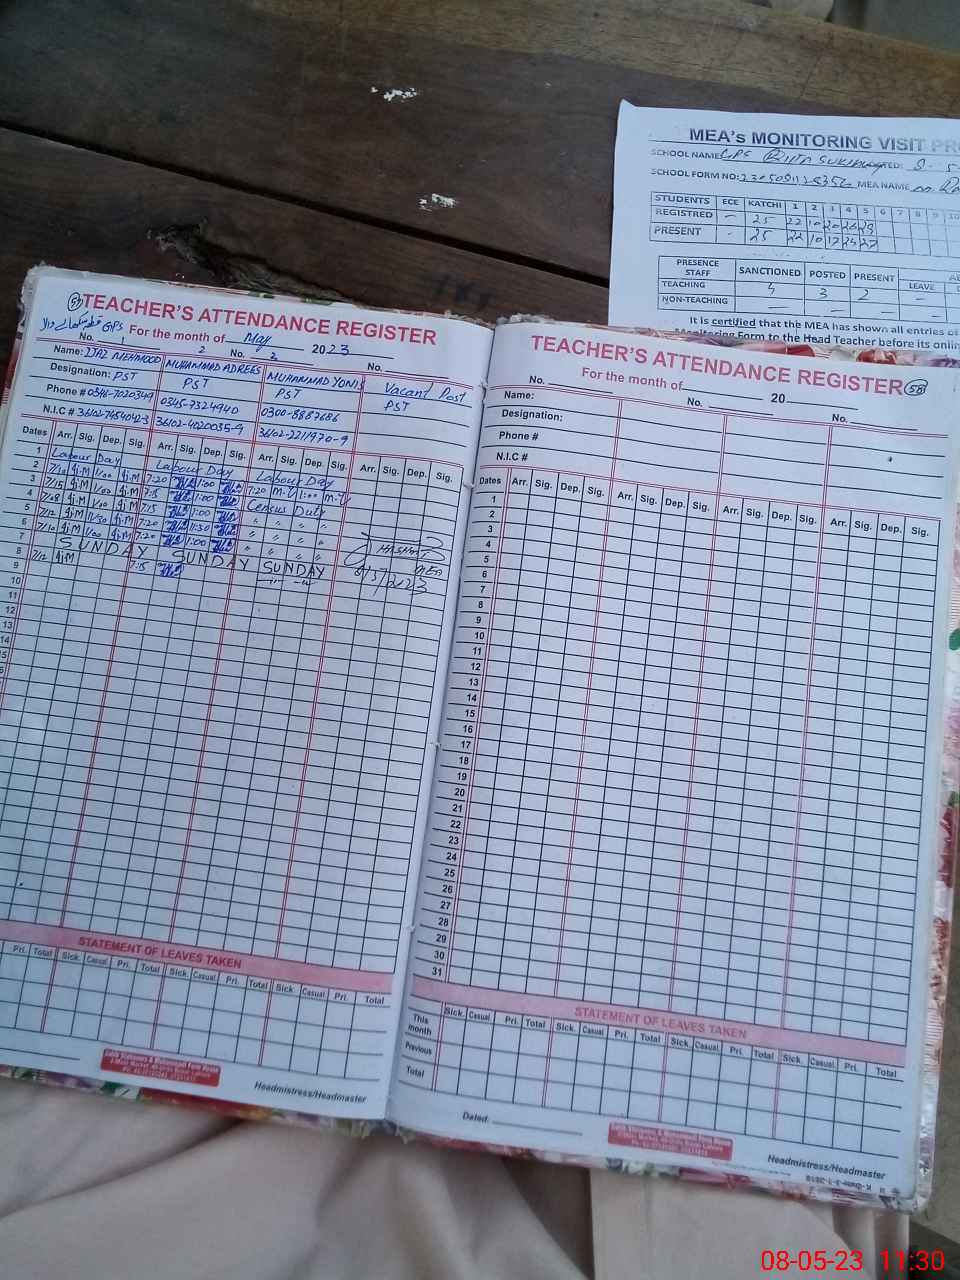 MEA's MONITORING VISIT PR
SCHOOL NAME: GPS
SCHOOL FORM NO: MEA NAME
STUDENTS ECE KATCHI 1 2 3 4 5 6 7 8 9 10
REGISTRED - 25 22 10 20 26 28
PRESENT - 25 22 10 17 24 27
PRESENCE STAFF SANCTIONED POSTED PRESENT LEAVE
TEACHING 4 3 2 -
NON-TEACHING - - -
It is certified that the MEA has shown all entries of
Monitoring Form to the Head Teacher before its onlin
57 TEACHER'S ATTENDANCE REGISTER
GPS For the month of May 2023
No. 1 2 No. 3 No.
Name: IJAZ MEHMOOD MUHAMMAD ADREES MUHAMMAD YONIS Vacant Post
Designation: PST PST PST PST
Phone # 0346-7020349 0345-7324940 0300-8887686
N.I.C # 36102-4020035-9
Dates Arr. Sig. Dep. Sig. Arr. Sig. Dep. Sig. Arr. Sig. Dep. Sig. Arr. Sig. Dep. Sig.
1 Labour Day Labour Day Labour Day
2 7/10 1/00 7:20 1:00 7:20 1:00
3 7/15 1/00 7:15 1:00 Census Duty
4 1/00 7/15 1:00 " " " "
5 7/12 11/30 7:20 11:30 " " " "
6 7/10 1/00 7:20 1:00 " " " "
7 SUNDAY SUNDAY SUNDAY
8 7/12 7:15
9
10
11
12
13
14
15
STATEMENT OF LEAVES TAKEN
Pri. Total Sick. Casual Pri. Total Sick. Casual Pri. Total Sick. Casual Pri. Total
Headmistress/Headmaster
TEACHER'S ATTENDANCE REGISTER 58
For the month of 20
No. No. No.
Name:
Designation:
Phone #
N.I.C #
Dates Arr. Sig. Dep. Sig. Arr. Sig. Dep. Sig. Arr. Sig. Dep. Sig. Arr. Sig. Dep. Sig.
1
2
3
4
5
6
7
8
9
10
11
12
13
14
15
16
17
18
19
20
21
22
23
24
25
26
27
28
29
30
31
STATEMENT OF LEAVES TAKEN
Sick. Casual Pri. Total Sick. Casual Pri. Total Sick. Casual Pri. Total Sick. Casual Pri. Total
This month
Previous
Total
Dated:
Headmistress/Headmaster
08-05-23 11:30